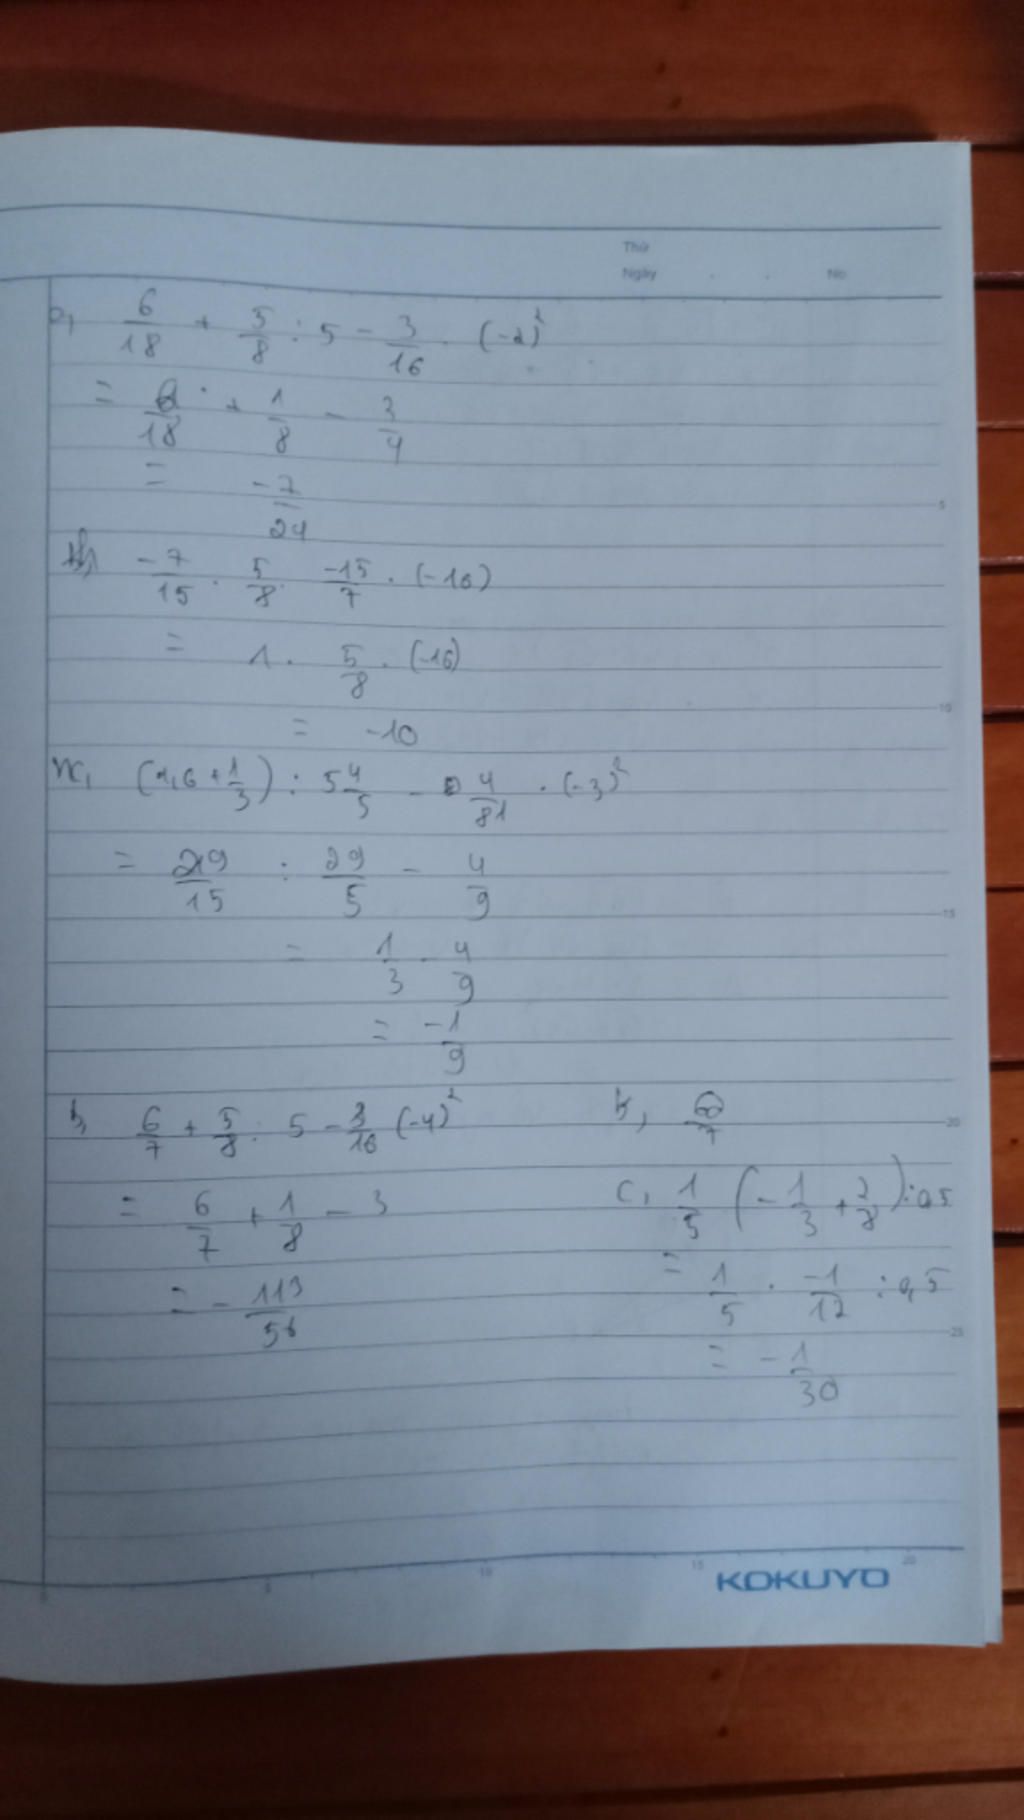 Thứ
Ngày . . No
6/18 + 5/8 : 5 - 3/16 . (-2)²
= 6/18 + 1/8 - 3/4
= -7/24
-7/15 . 5/8 . -15/7 . (-16)
= 1 . 5/8 . (-16)
= -10
(1,6 + 1/3) : 5 4/5 - 4/81 . (-3)²
= 29/15 : 29/5 - 4/9
= 1/3 - 4/9
= -1/9
6/7 + 5/8 : 5 - 3/16 (-4)²
= 6/7 + 1/8 - 3
= - 113/56
c, 1/5 (-1/3 + 2/8) : 0,5
= 1/5 . -1/12 : 0,5
= - 1/30
5
10
15
20
25
5 10 15 20
KOKUYO